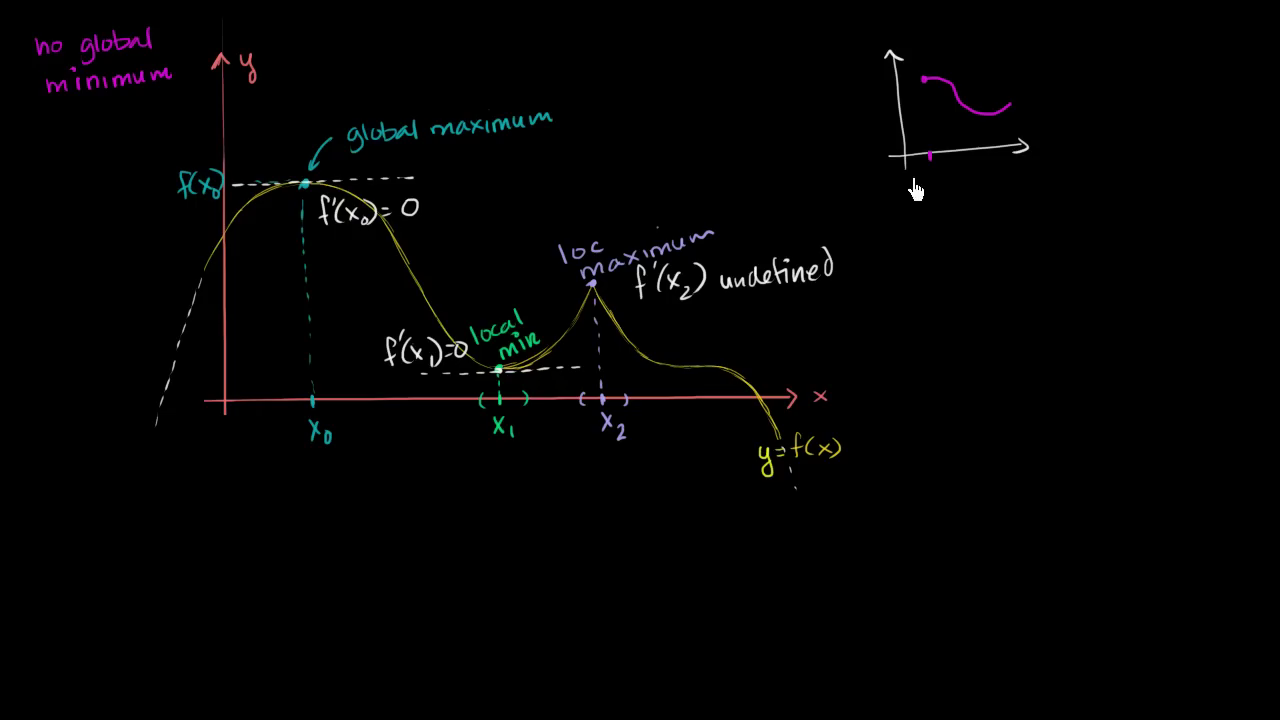 no global
minimum
y
global maximum
f(x₀)
f'(x₀) = 0
loc
maximum
f'(x₂) undefined
local
min
f'(x₁)=0
x
x₀
x₁
x₂
y=f(x)